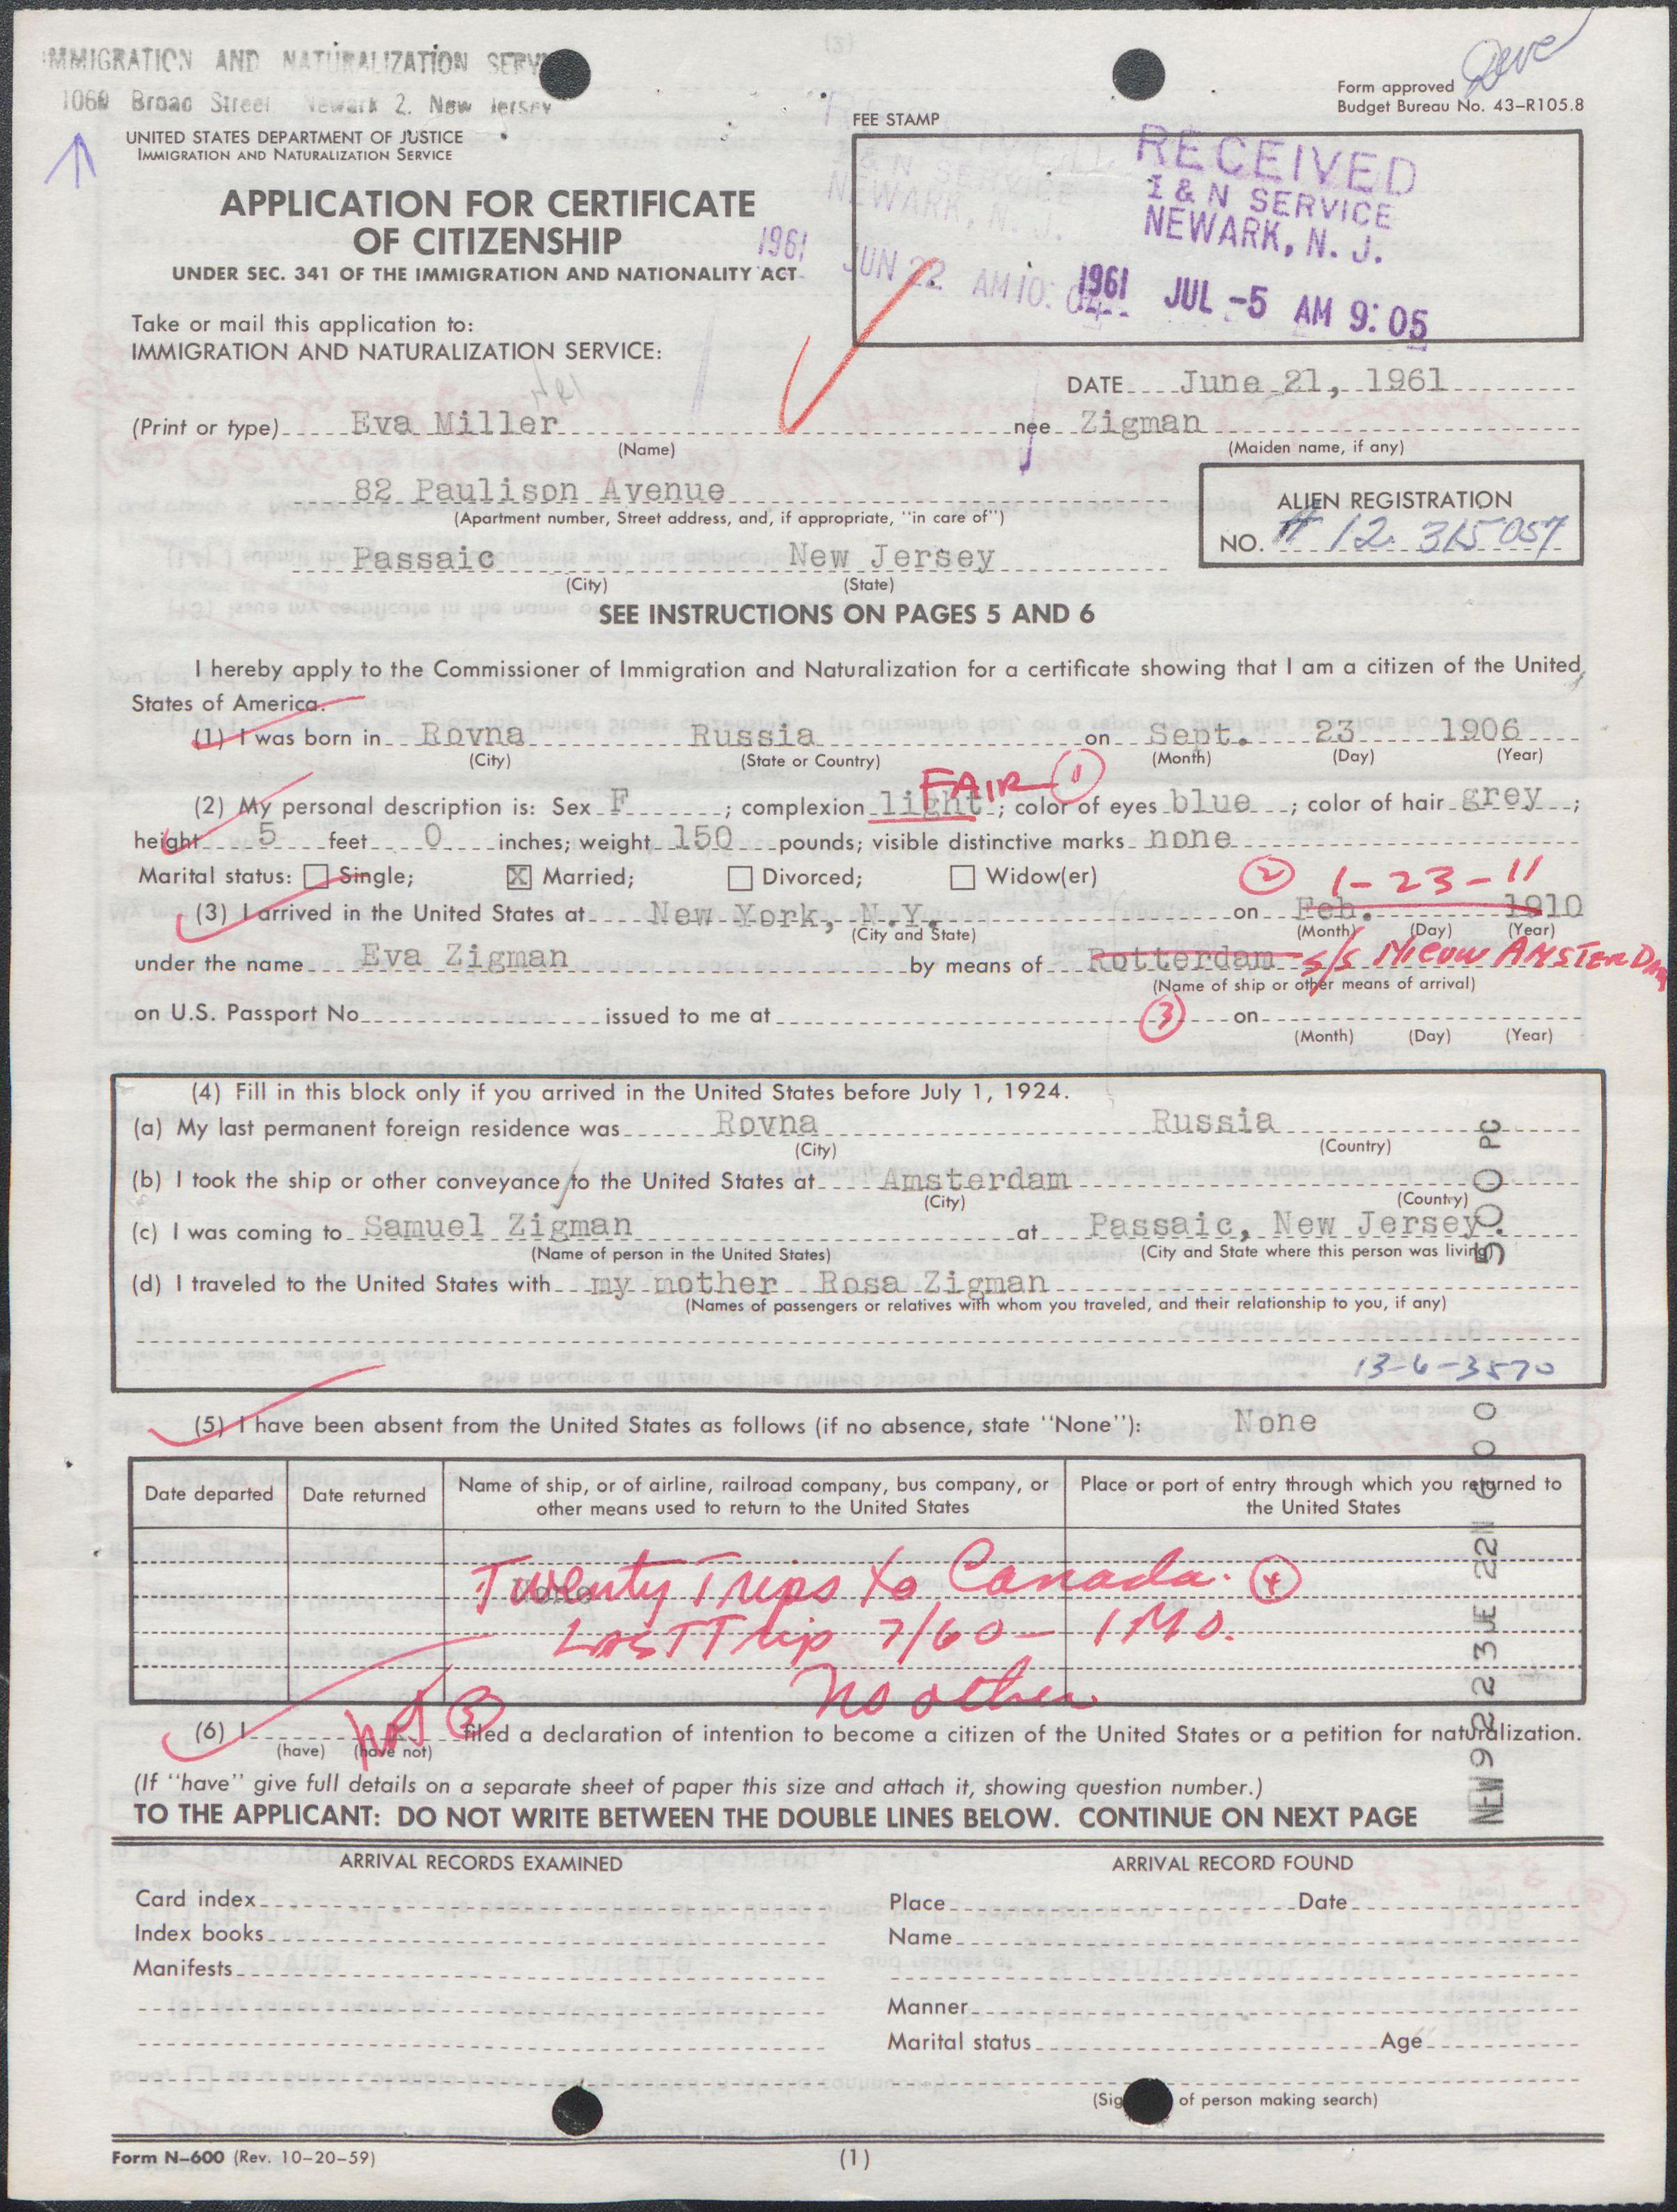 IMMIGRATION AND NATURALIZATION SERV
1060 Broad Street Newark 2, New Jersey
Form approved
Budget Bureau No. 43-R105.8
UNITED STATES DEPARTMENT OF JUSTICE
IMMIGRATION AND NATURALIZATION SERVICE
FEE STAMP
RECEIVED
I & N SERVICE
NEWARK, N. J.
1961 JUL -5 AM 9:05
I & N SERVICE
NEWARK, N. J.
1961 JUN 22 AM 10:04
APPLICATION FOR CERTIFICATE
OF CITIZENSHIP
UNDER SEC. 341 OF THE IMMIGRATION AND NATIONALITY ACT
Take or mail this application to:
IMMIGRATION AND NATURALIZATION SERVICE:
DATE June 21, 1961
(Print or type) Eva Miller nee Zigman
(Name) (Maiden name, if any)
82 Paulison Avenue
(Apartment number, Street address, and, if appropriate, "in care of")
ALIEN REGISTRATION
NO. A 12 315 057
Passaic New Jersey
(City) (State)
SEE INSTRUCTIONS ON PAGES 5 AND 6
I hereby apply to the Commissioner of Immigration and Naturalization for a certificate showing that I am a citizen of the United
States of America.
(1) I was born in Rovna Russia on Sept. 23 1906
(City) (State or Country) (Month) (Day) (Year)
FAIR 1
(2) My personal description is: Sex F ; complexion light ; color of eyes blue ; color of hair grey ;
height 5 feet 0 inches; weight 150 pounds; visible distinctive marks none
Marital status: Single; X Married; Divorced; Widow(er)
2 1-23-11
(3) I arrived in the United States at New York, N.Y. on Feb. 1910
(City and State) (Month) (Day) (Year)
under the name Eva Zigman by means of Rotterdam S/S NIEUW AMSTERDAM
(Name of ship or other means of arrival)
on U.S. Passport No. issued to me at 3 on
(Month) (Day) (Year)
(4) Fill in this block only if you arrived in the United States before July 1, 1924.
(a) My last permanent foreign residence was Rovna Russia
(City) (Country)
(b) I took the ship or other conveyance to the United States at Amsterdam
(City) (Country)
(c) I was coming to Samuel Zigman at Passaic, New Jersey
(Name of person in the United States) (City and State where this person was living)
(d) I traveled to the United States with my mother Rosa Zigman
(Names of passengers or relatives with whom you traveled, and their relationship to you, if any)
13-6-3570
(5) I have been absent from the United States as follows (if no absence, state "None"): None
Date departed Date returned Name of ship, or of airline, railroad company, bus company, or other means used to return to the United States Place or port of entry through which you returned to the United States
None
Twenty Trips to Canada. 4
LAST Trip 7/60 - 1 MO.
no other
(6) I not 5 filed a declaration of intention to become a citizen of the United States or a petition for naturalization.
(have) (have not)
(If "have" give full details on a separate sheet of paper this size and attach it, showing question number.)
TO THE APPLICANT: DO NOT WRITE BETWEEN THE DOUBLE LINES BELOW. CONTINUE ON NEXT PAGE
ARRIVAL RECORDS EXAMINED ARRIVAL RECORD FOUND
Card index Place Date
Index books Name
Manifests
Manner
Marital status Age
(Sig of person making search)
Form N-600 (Rev. 10-20-59) (1)